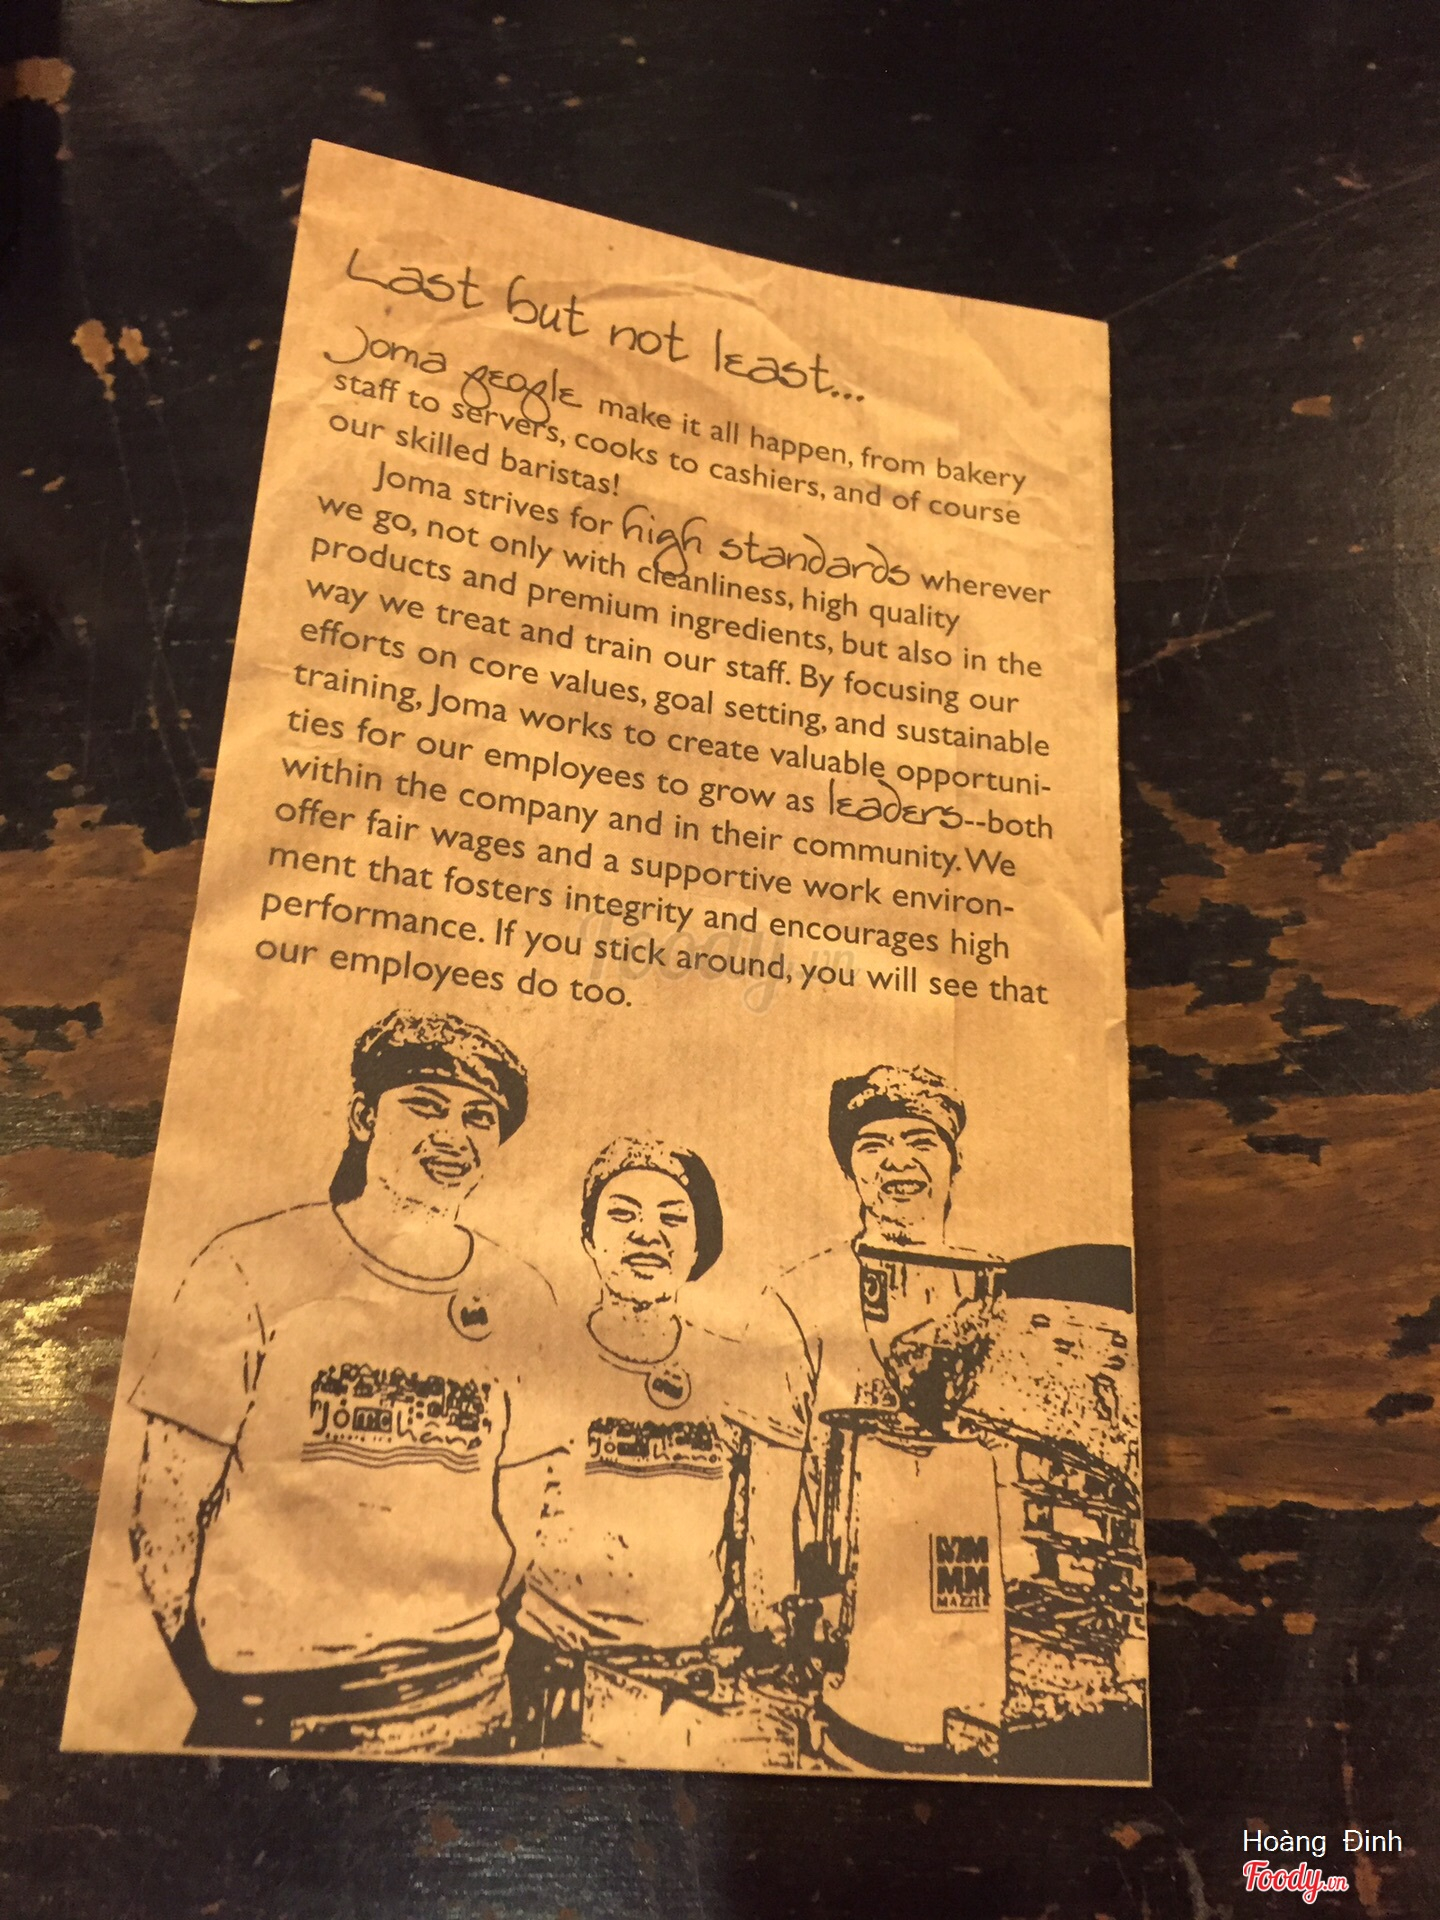 Last but not least...
Joma people make it all happen, from bakery
staff to servers, cooks to cashiers, and of course
our skilled baristas!
Joma strives for high standards wherever
we go, not only with cleanliness, high quality
products and premium ingredients, but also in the
way we treat and train our staff. By focusing our
efforts on core values, goal setting, and sustainable
training, Joma works to create valuable opportuni-
ties for our employees to grow as leaders--both
within the company and in their community. We
offer fair wages and a supportive work environ-
ment that fosters integrity and encourages high
performance. If you stick around, you will see that
our employees do too.
Foody.vn
joma
joma
MAZZER
Hoàng Đinh
Foody.vn